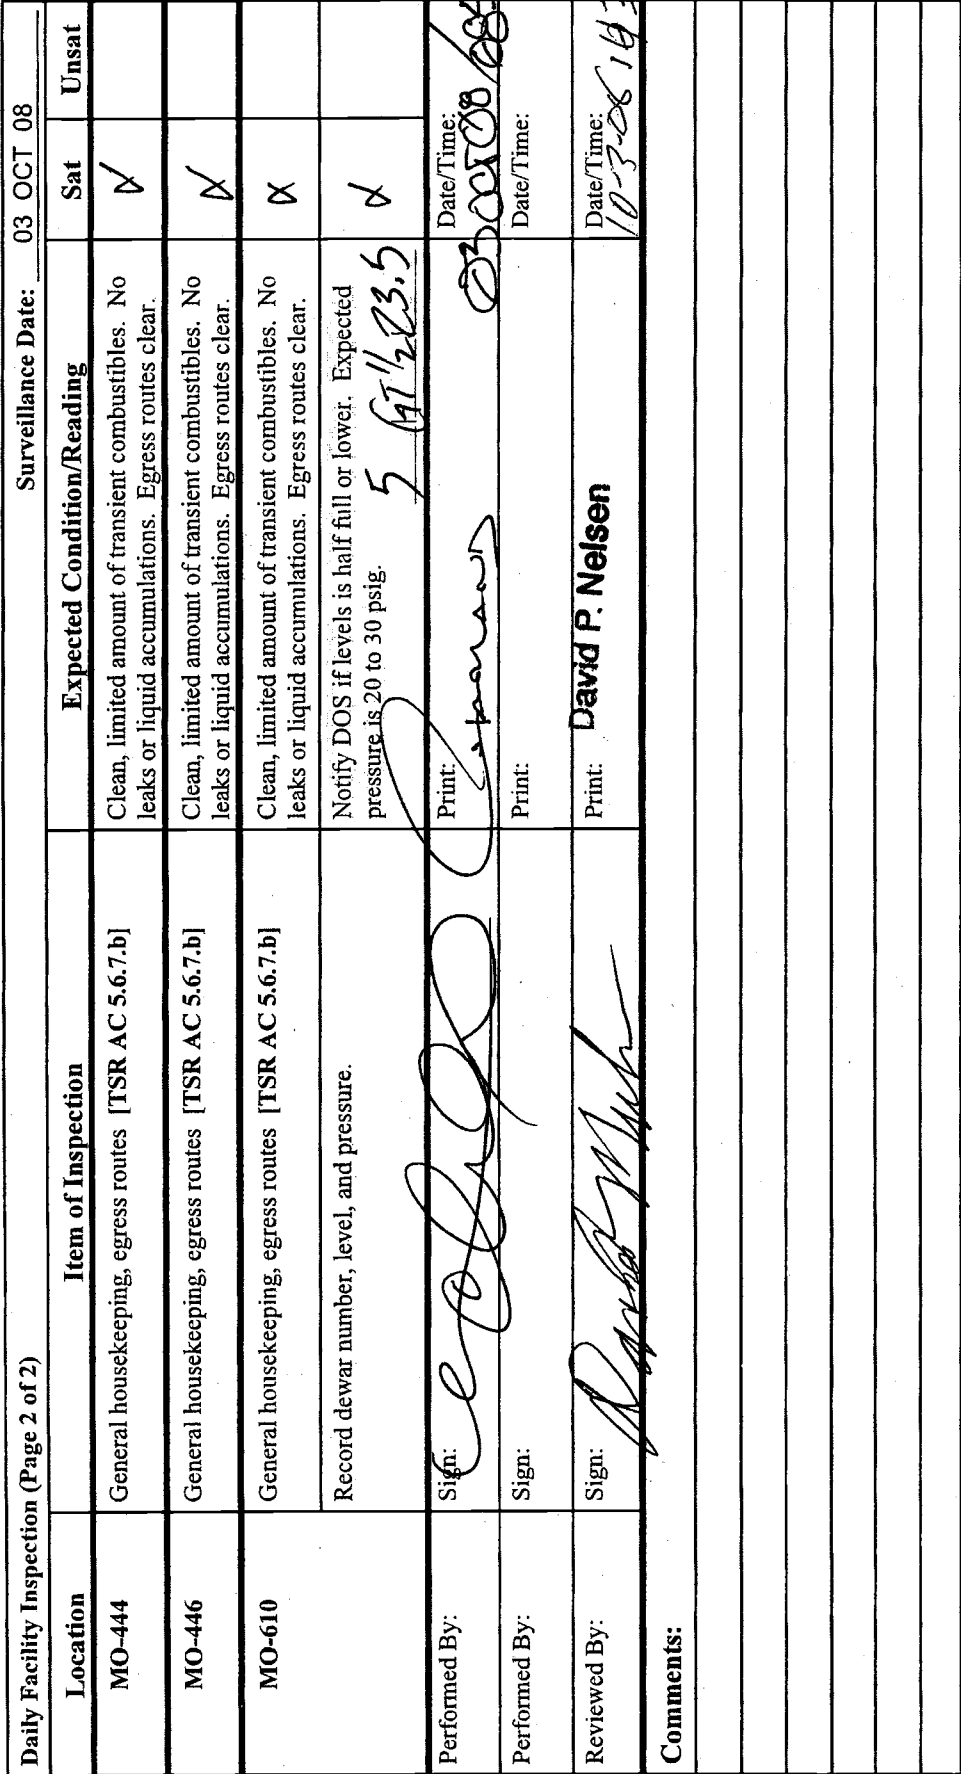 Daily Facility Inspection (Page 2 of 2)
Surveillance Date: 03 OCT 08
Location Item of Inspection Expected Condition/Reading Sat Unsat
MO-444 General housekeeping, egress routes [TSR AC 5.6.7.b] Clean, limited amount of transient combustibles. No
leaks or liquid accumulations. Egress routes clear.
MO-446 General housekeeping, egress routes [TSR AC 5.6.7.b] Clean, limited amount of transient combustibles. No
leaks or liquid accumulations. Egress routes clear.
MO-610 General housekeeping, egress routes [TSR AC 5.6.7.b] Clean, limited amount of transient combustibles. No
leaks or liquid accumulations. Egress routes clear.
Record dewar number, level, and pressure. Notify DOS if levels is half full or lower. Expected
pressure is 20 to 30 psig. 5 GT 1/2 23.5
Performed By: Sign: Print: Date/Time:
03 OCT 08
Performed By: Sign: Print: Date/Time:
Reviewed By: Sign: Print: David P. Nelsen Date/Time:
Comments: